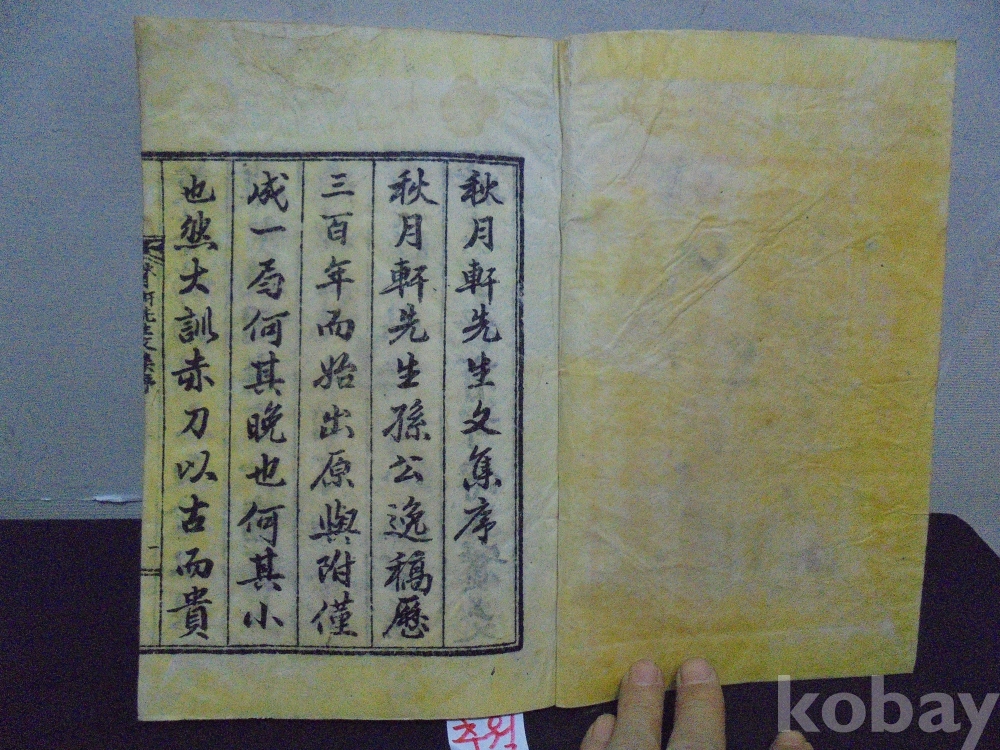 秋月軒先生文集序
秋月軒先生孫公逸稿歷
三百年而始出原與附僅
成一局何其晚也何其小
也然大訓赤刀以古而貴
추월
kobay